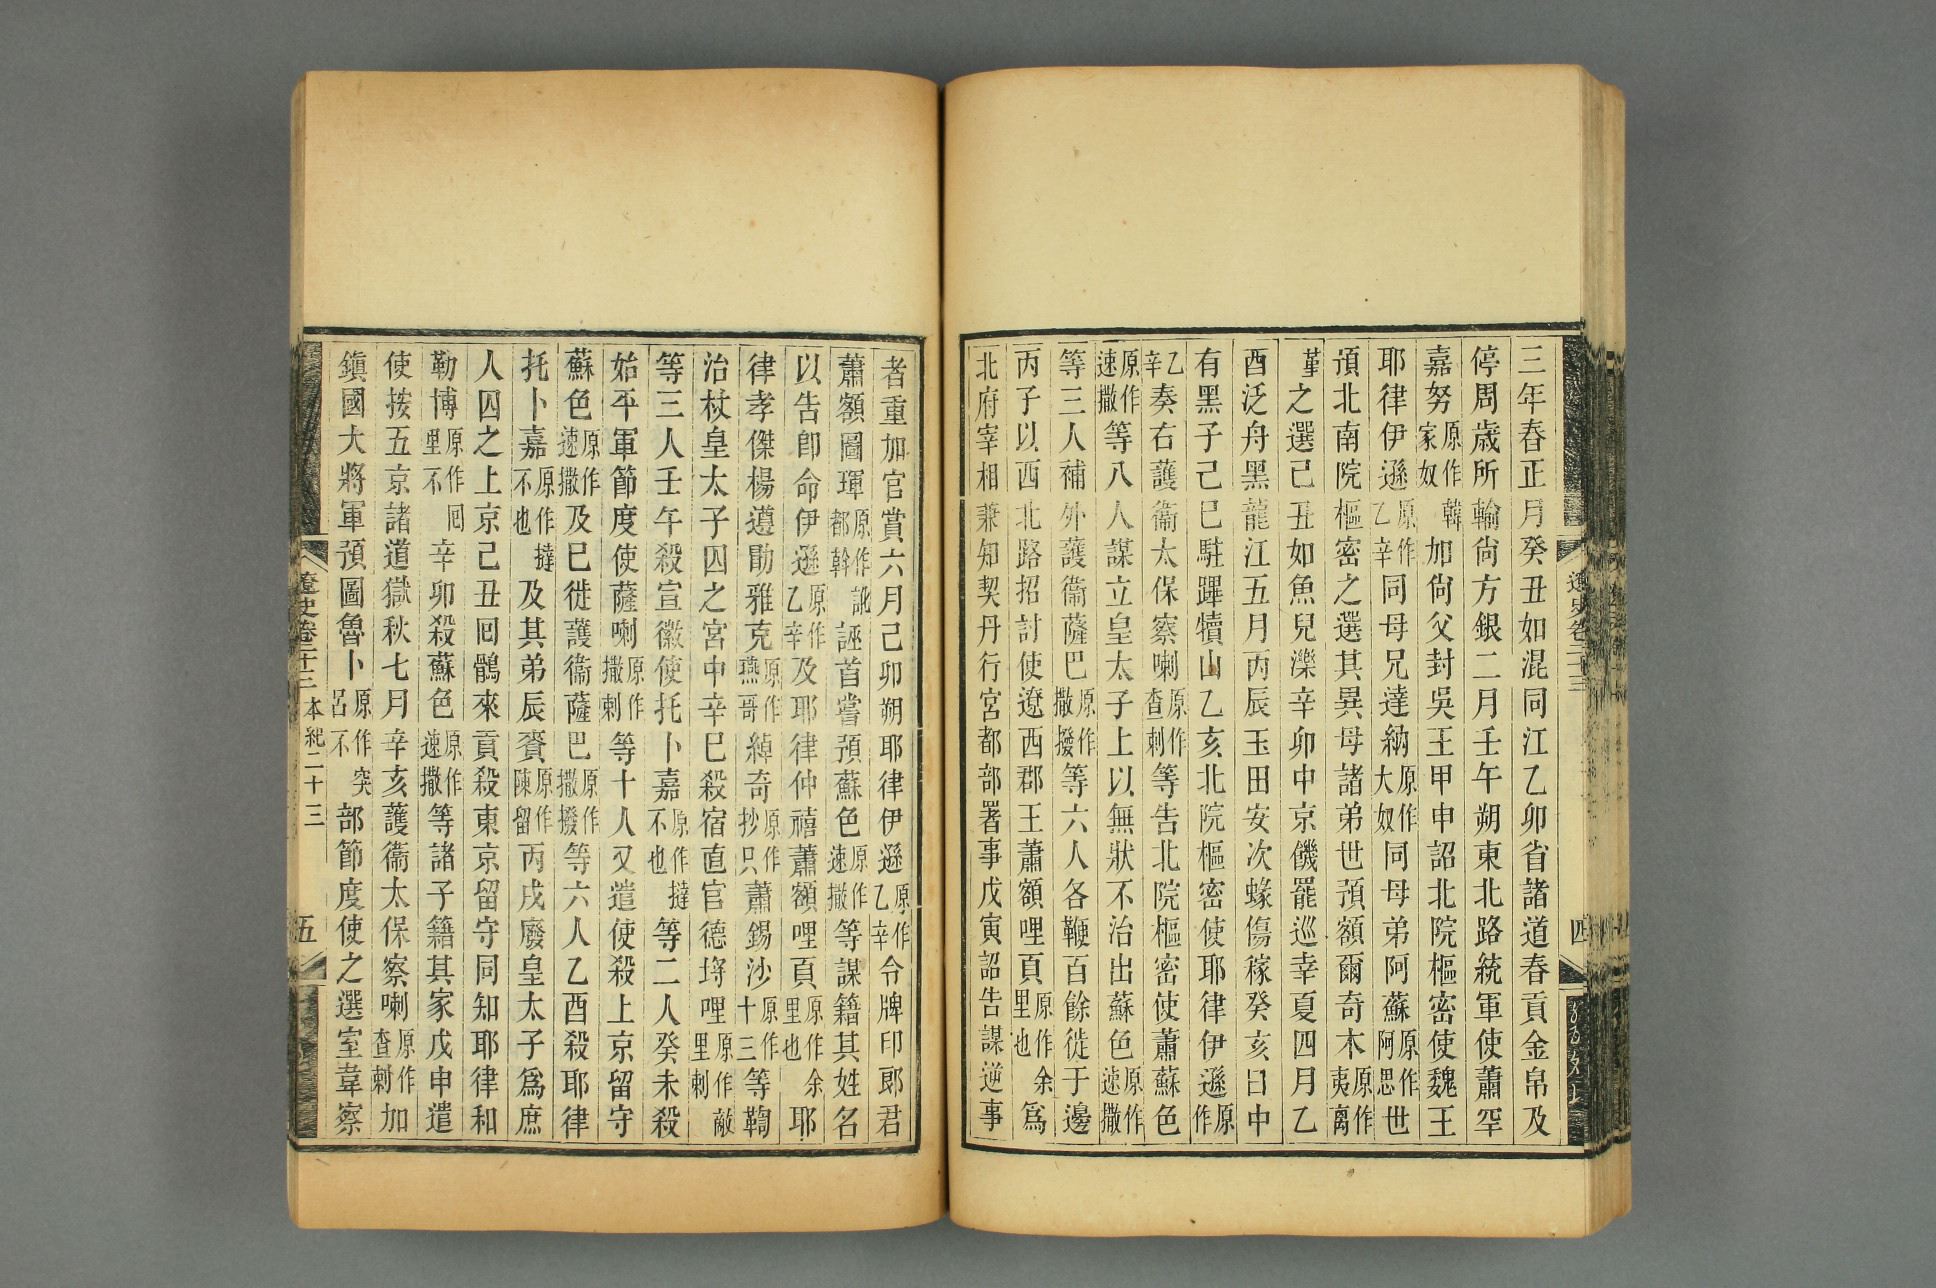 遼史卷二十三
四
三年春正月癸丑如混同江乙卯省諸道春貢金帛及
停周歲所輸尙方銀二月壬午朔東北路統軍使蕭罕
嘉努原作韓家奴加尙父封吳王甲申詔北院樞密使魏王
耶律伊遜原作乙辛同母兄達納原作大奴同母弟阿蘇原作阿思世
預北南院樞密之選其異母諸弟世預額爾奇木原作夷离
堇之選己丑如魚兒濼辛卯中京饑罷巡幸夏四月乙
酉泛舟黑龍江五月丙辰玉田安次蝝傷稼癸亥日中
有黑子己巳駐蹕犢山乙亥北院樞密使耶律伊遜原作
乙辛奏右護衞太保察喇原作查剌等告北院樞密使蕭蘇色
原作速撒等八人謀立皇太子上以無狀不治出蘇色原作速撒
等三人補外護衞薩巴原作撒撥等六人各鞭百餘徙于邊
丙子以西北路招討使遼西郡王蕭額哩頁原作余里也爲
北府宰相兼知契丹行宮都部署事戊寅詔告謀逆事
者重加官賞六月己卯朔耶律伊遜原作乙辛令牌印郞君
蕭額圖琿原作訛都斡誣首嘗預蘇色原作速撒等謀籍其姓名
以告卽命伊遜原作乙辛及耶律仲禧蕭額哩頁原作余里也耶
律孝傑楊遵勖雅克原作燕哥綽奇原作抄只蕭錫沙原作十三等鞫
治杖皇太子囚之宮中辛巳殺宿直官德埒哩原作敵里剌
等三人壬午殺宣徽使托卜嘉原作撻不也等二人癸未殺
始平軍節度使薩喇原作撒剌等十人又遣使殺上京留守
蘇色原作速撒及已徙護衞薩巴原作撒撥等六人乙酉殺耶律
托卜嘉原作撻不也及其弟辰賚原作陳留丙戌廢皇太子爲庶
人囚之上京己丑囘鶻來貢殺東京留守同知耶律和
勒博原作囘里不辛卯殺蘇色原作速撒等諸子籍其家戊申遣
使按五京諸道獄秋七月辛亥護衞太保察喇原作查剌加
鎮國大將軍預圖魯卜原作突呂不部節度使之選室韋察
遼史卷二十三 本紀二十三
五